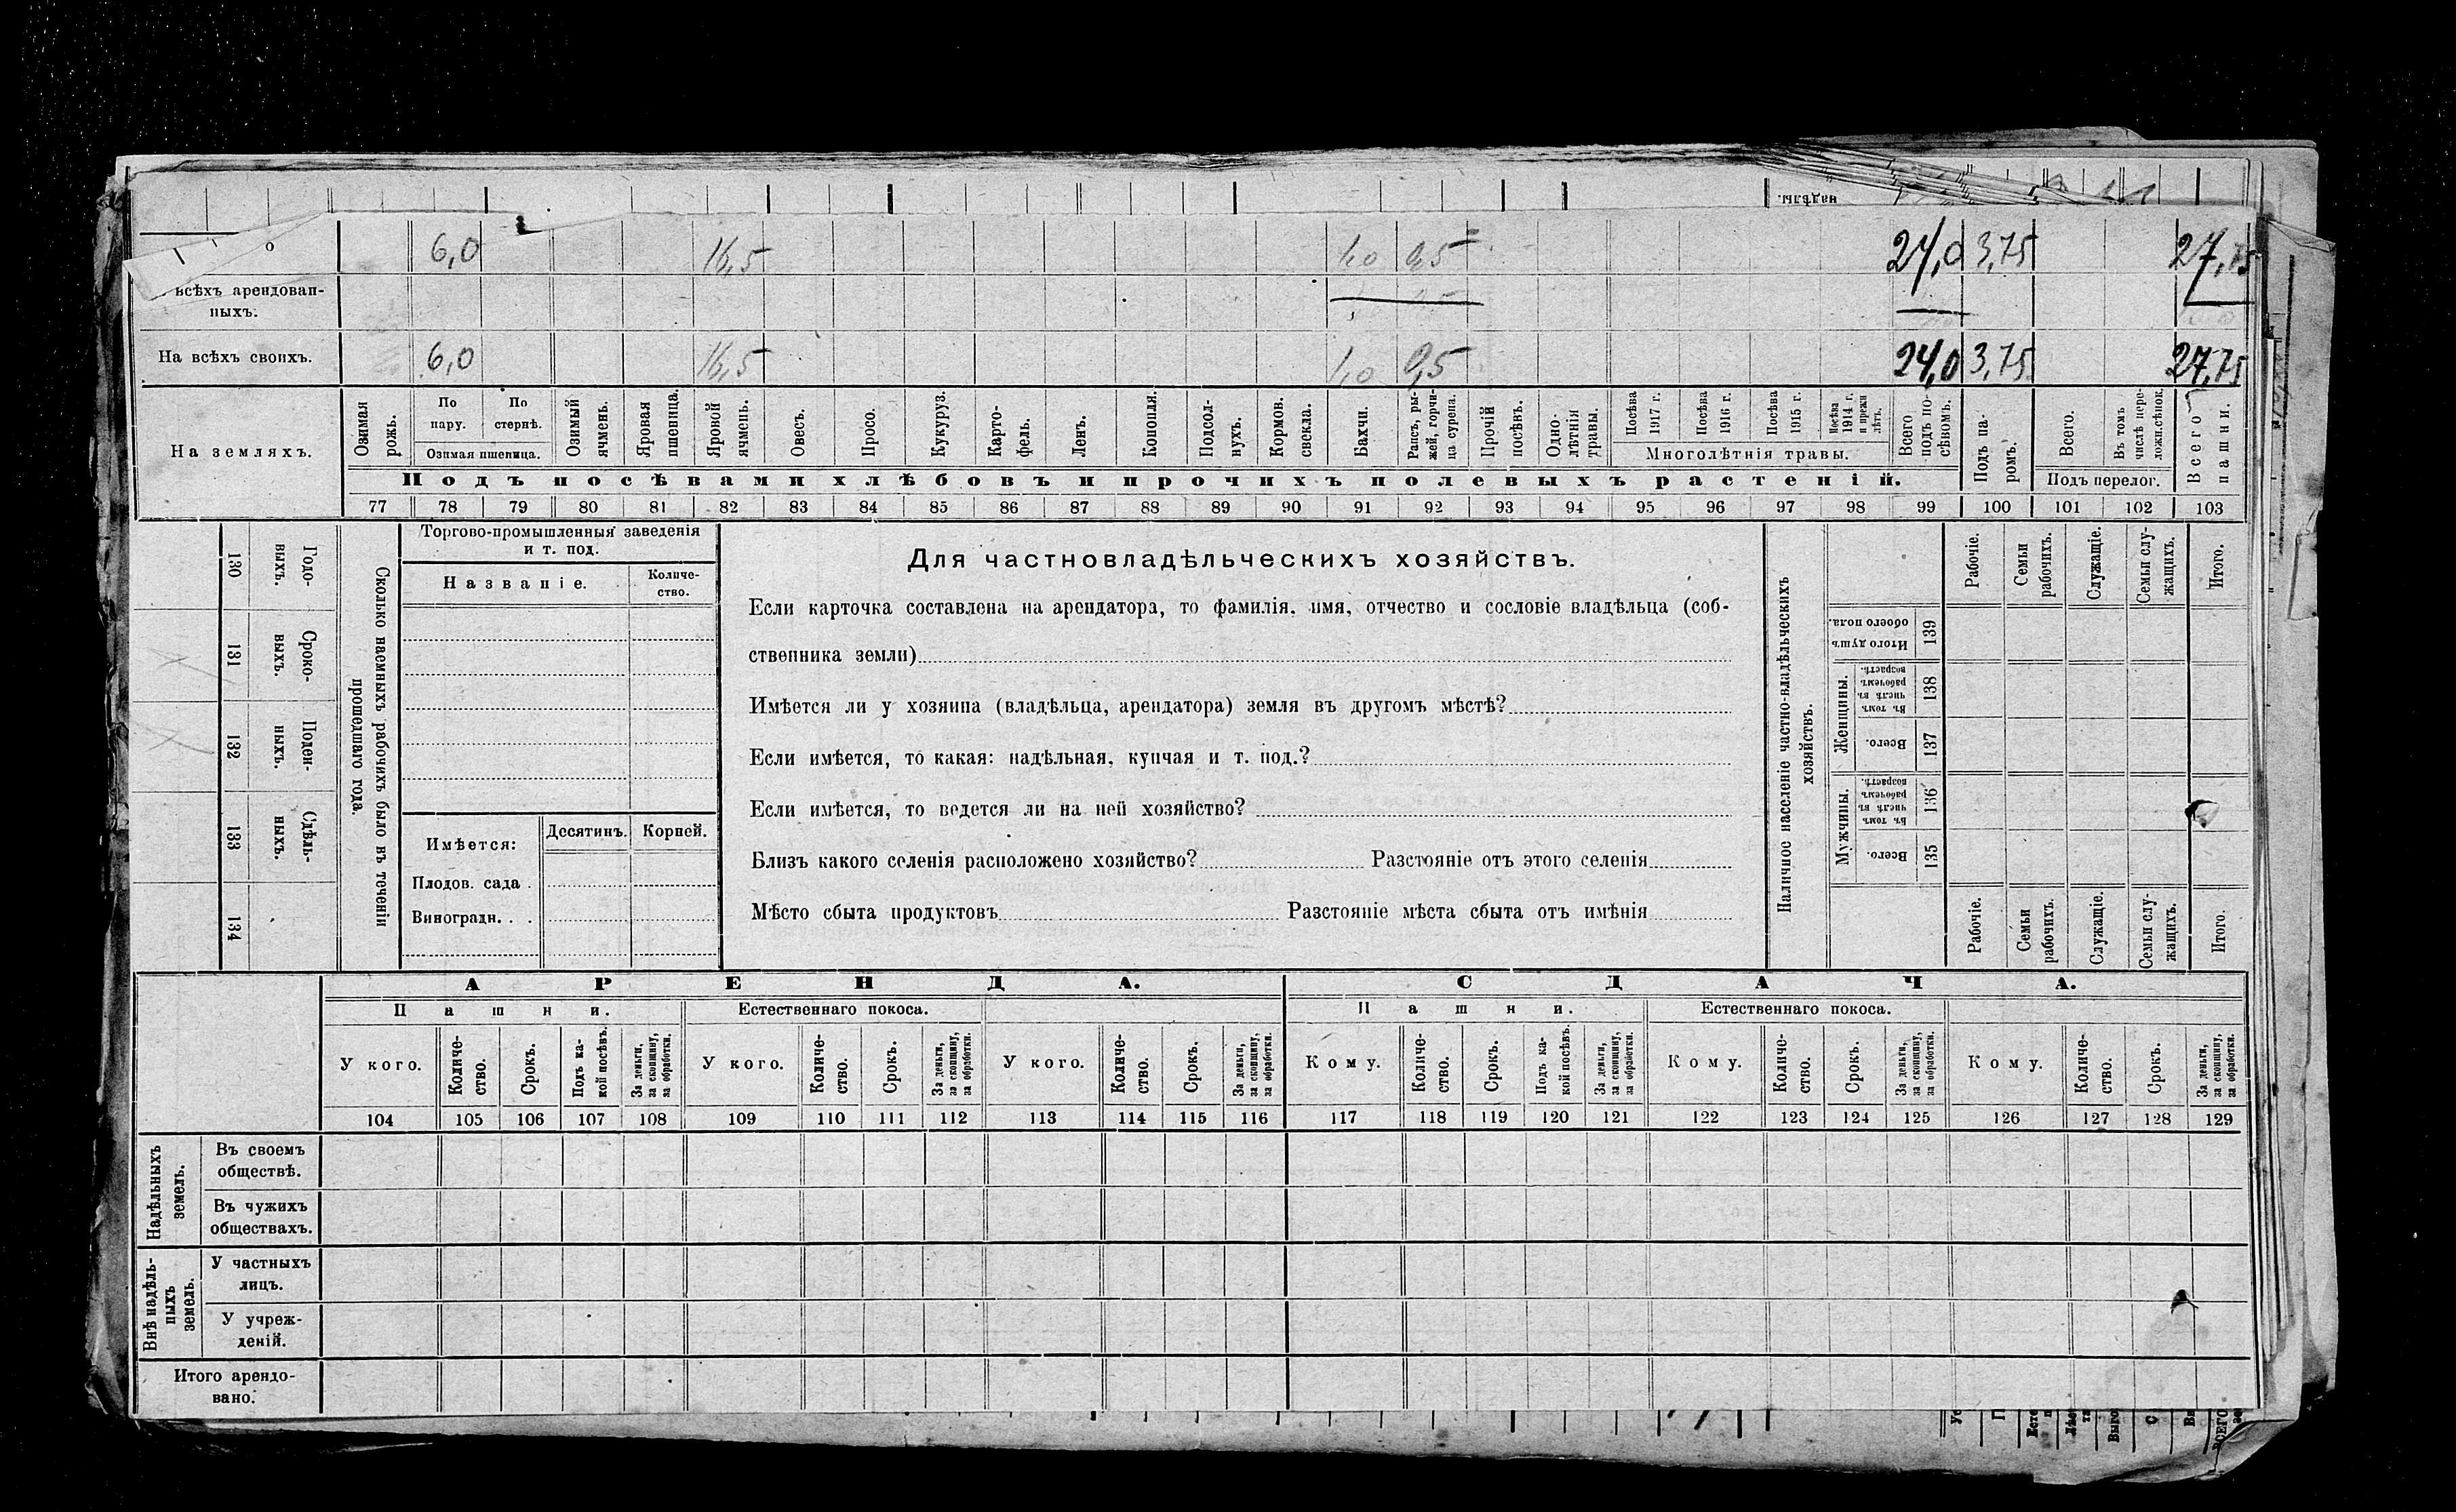 надѣлы.
о 6,0 16,5 1,0 0,5 24,0 3,75 27,75
всѣхъ арендован-
ныхъ.
На всѣхъ своихъ. 6,0 16,5 1,0 0,5 24,0 3,75 27,75
На земляхъ.
Озимая рожь.
По пару.
По стернѣ.
Озимая пшеница.
Озимый ячмень.
Яровая пшеница.
Яровой ячмень.
Овесъ.
Просо.
Кукуруз.
Карто-
фель.
Ленъ.
Конопля.
Подсол-
нухъ.
Кормов.
свекла.
Бахчи.
Рапсъ, ры-
жей, горчи-
ца сурепа.
Прочій
посѣвъ.
Одно-
лѣтнія
травы.
Посѣва
1917 г.
Посѣва
1916 г.
Посѣва
1915 г.
Посѣва
1914 г.
и прежн
лѣтъ.
Многолѣтнія травы.
Всего
подъ по-
сѣвомъ.
Подъ па-
ромъ.
Всего.
Въ томъ
числѣ пере-
ложн.сѣнок.
Подъ перелог.
Всего
пашни.
Подъ посѣвами хлѣбовъ и прочихъ полевыхъ растеній.
77 78 79 80 81 82 83 84 85 86 87 88 89 90 91 92 93 94 95 96 97 98 99 100 101 102 103
130 Годо-
выхъ.
131 Сроко-
выхъ.
132 Поден-
ныхъ.
133 Сдѣль-
ныхъ.
134
Сколько наемныхъ рабочихъ было въ теченіи
прошедшаго года.
Торгово-промышленныя заведенія
и т. под.
Названіе.
Количе-
ство.
Имѣется:
Десятинъ.
Корней.
Плодов. сада .
Виноградн. . .
Для частновладѣльческихъ хозяйствъ.
Если карточка составлена на арендатора, то фамилія, имя, отчество и сословіе владѣльца (соб-
ственника земли)
Имѣется ли у хозяина (владѣльца, арендатора) земля въ другомъ мѣстѣ?
Если имѣется, то какая: надѣльная, купчая и т. под.?
Если имѣется, то ведется ли на ней хозяйство?
Близъ какого селенія расположено хозяйство? Разстояніе отъ этого селенія
Мѣсто сбыта продуктовъ Разстояніе мѣста сбыта отъ имѣнія
Наличное населеніе частно-владѣльческихъ
хозяйствъ.
Рабочіе.
Семьи
рабочихъ.
Служащіе.
Семьи слу-
жащихъ.
Итого.
Итого душъ
обоего пола.
139
Женщины.
Въ томъ
числѣ въ
рабочемъ
возрастѣ.
138
Всего.
137
Мужчины.
Въ томъ
числѣ въ
рабочемъ
возрастѣ.
136
Всего.
135
Рабочіе.
Семьи
рабочихъ.
Служащіе.
Семьи слу-
жащихъ.
Итого.
АРЕНДА. СДАЧА.
Пашни. Естественнаго покоса. Пашни. Естественнаго покоса.
У кого.
Количе-
ство.
Срокъ.
Подъ ка-
кой посѣвъ.
За деньги,
за скопщину,
за обработки.
У кого.
Количе-
ство.
Срокъ.
За деньги,
за скопщину,
за обработки.
У кого.
Количе-
ство.
Срокъ.
За деньги,
за скопщину,
за обработки.
Кому.
Количе-
ство.
Срокъ.
Подъ ка-
кой посѣвъ.
За деньги,
за скопщину,
за обработки.
Кому.
Количе-
ство.
Срокъ.
За деньги,
за скопщину,
за обработки.
Кому.
Количе-
ство.
Срокъ.
За деньги,
за скопщину,
за обработки.
104 105 106 107 108 109 110 111 112 113 114 115 116 117 118 119 120 121 122 123 124 125 126 127 128 129
Надѣльныхъ
земель.
Въ своемъ
обществѣ.
Въ чужихъ
обществахъ.
Внѣ надѣль-
ныхъ
земель.
У частныхъ
лицъ.
У учреж-
деній.
Итого арендо-
вано.